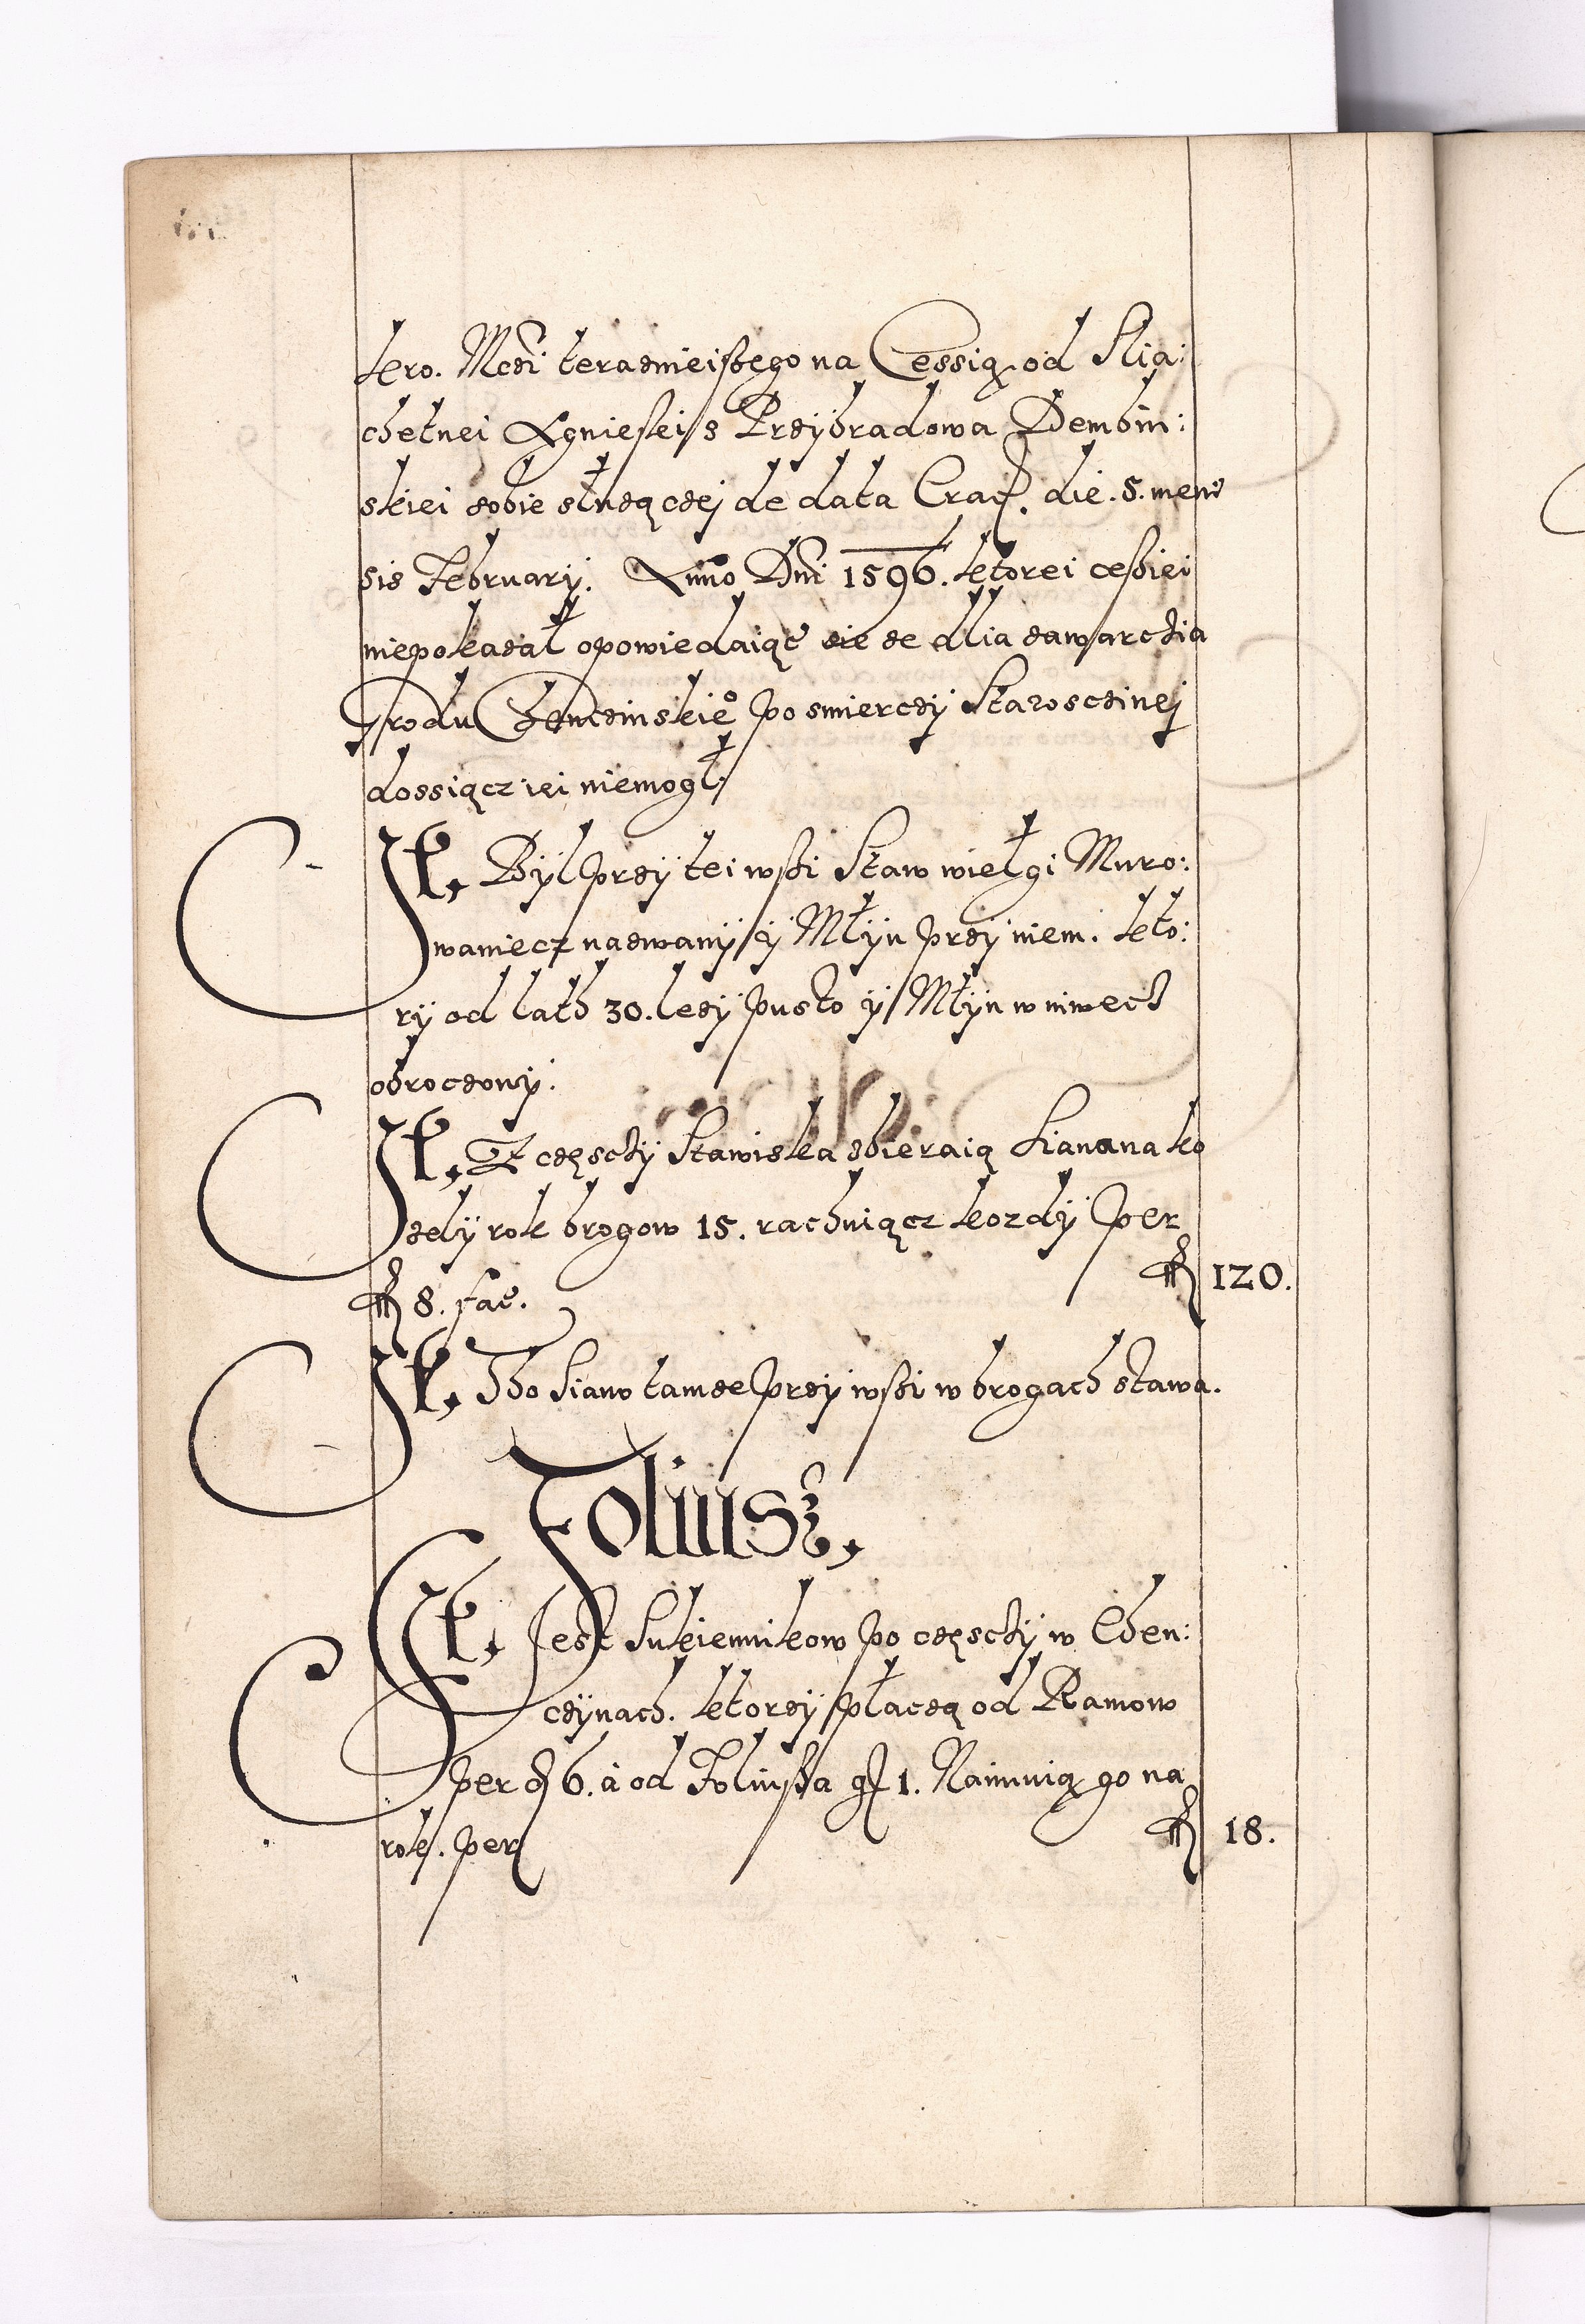 kro. Mczi teraznieißego na Cessią od Slia:
chetnei Agnieskei s Przÿbradowa Dembin:
skiei sobie słuzączej de data Crac. die. 5. men
sis Februarÿ. Anno Dni 1596. ktorei ceßiei
niepokazał opowiedaiąc sie ze dlia zawarchia
Grodu Chencinskie° po smierczÿ Starosczinej
dossiącz iei niemogł.
It. Bÿl przÿ tei wßi Staw wielgi Muro:
waniecz nazwanÿ ÿ Młÿn przÿ niem. kto:
rÿ od lath 30. lezÿ pusto ÿ Młÿn w niwech
obroczonÿ.
It. Z częschÿ Stawiska zbieraią Siana na ko
zdÿ rok brogow 15. rachuiącz kozdÿ per
fl 8. fac. fl 120.
It. Tho Siano tamze przÿ wßi w brogach stawa.
Foliusz,
It. Jest Sukiennikow po częschÿ w Chen:
czÿnach. ktorzÿ płaczą od Ramow
per gr 6. à od Folußa gr 1. Naimuią go na
rok. per fl 18.